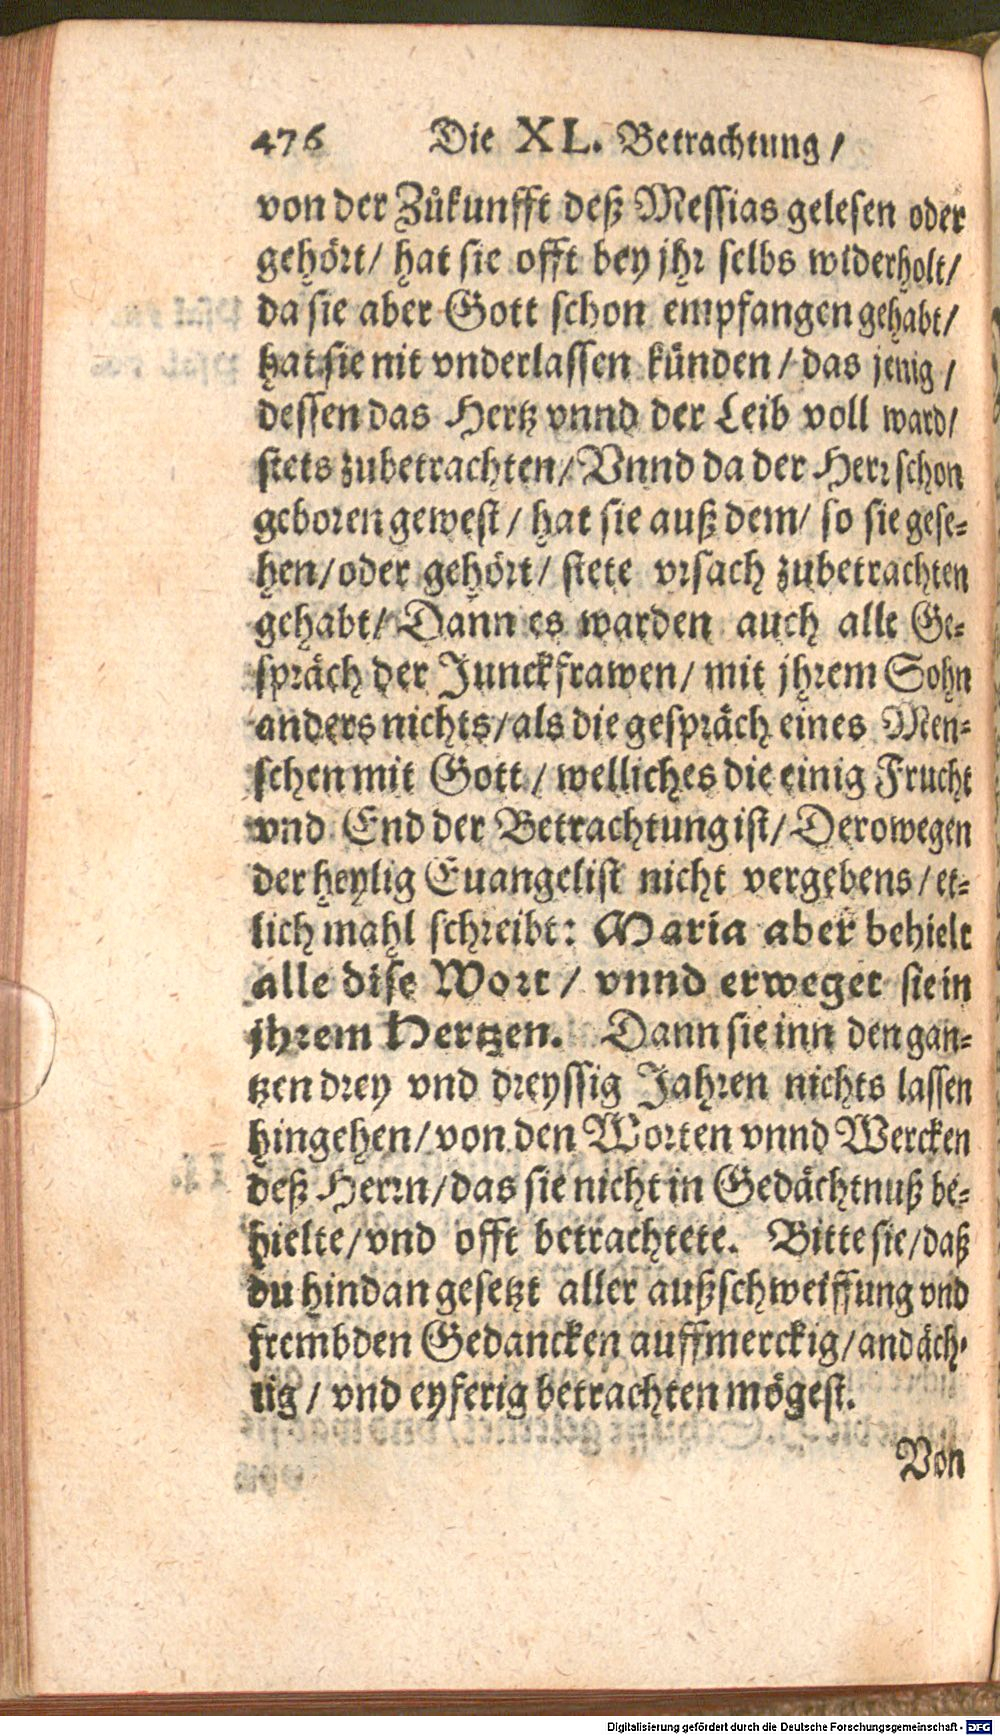 476 Die XL. Betrachtung /
von der Zůkunfft deß Messias gelesen oder
gehört/ hat sie offt bey jhr selbs widerholt/
da sie aber Gott schon empfangen gehabt/
hat sie nit vnderlassen künden / das jenig /
dessen das Hertz vnnd der Leib voll ward/
stets zubetrachten/ Vnnd da der Herr schon
geboren gewest / hat sie auß dem/ so sie gese-
hen/ oder gehört/ stete vrsach zubetrachten
gehabt/ Dann es warden auch alle Ge-
spräch der Junckfrawen/ mit jhrem Sohn
anders nichts/ als die gespräch eines Men-
schen mit Gott / welliches die einig Frucht
vnd End der Betrachtung ist/ Derowegen
der heylig Euangelist nicht vergebens / et-
lich mahl schreibt: Maria aber behielt
alle dise Wort / vnnd erweget sie in
jhrem Hertzen. Dann sie inn den gan-
tzen drey vnd dreyssig Jahren nichts lassen
hingehen/ von den Worten vnnd Wercken
deß Herrn/ das sie nicht in Gedächtnuß be-
hielte/ vnd offt betrachtete. Bitte sie/ daß
du hindan gesetzt aller außschweiffung vnd
frembden Gedancken auffmerckig/ andäch-
tig / vnd eyferig betrachten mögest.
Von
Digitalisierung gefördert durch die Deutsche Forschungsgemeinschaft - DFG